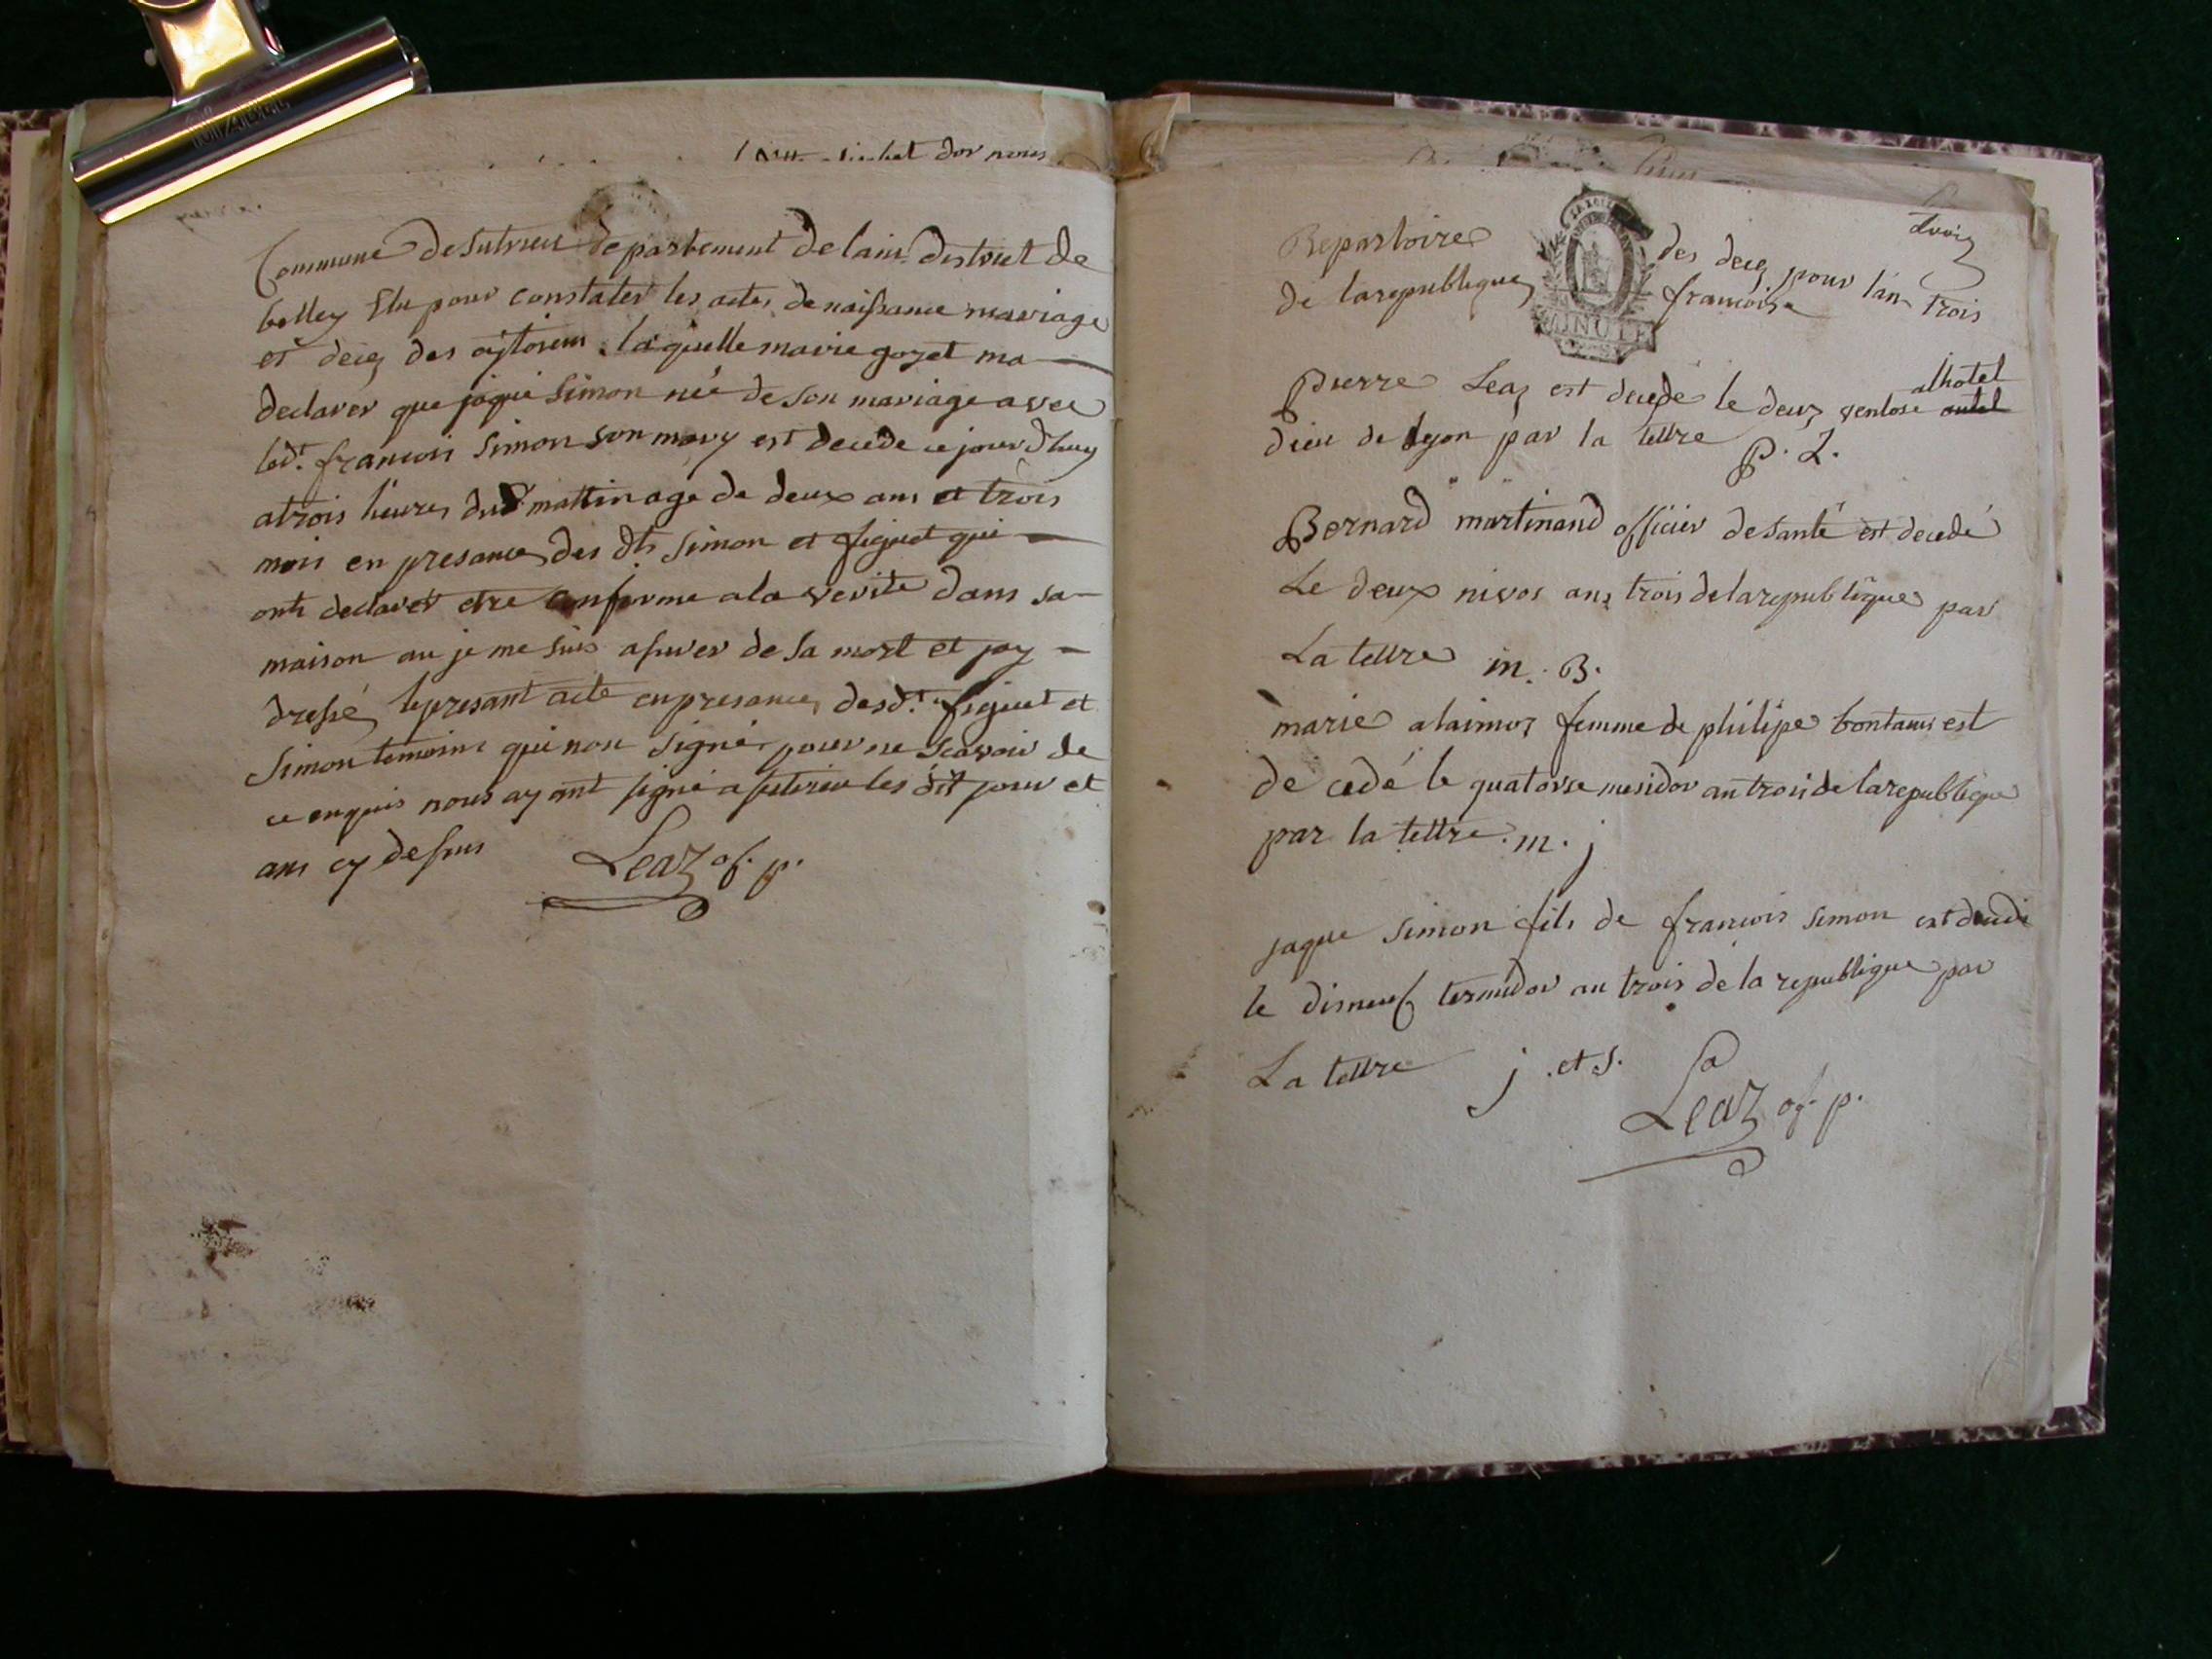 Commune de sutrieu departement de lain district de
belley Elu pour constater les actes de naissance mariage
et decez des sitoiens laquelle marie gozet ma
declarer que jaque Simon né de son mariage avec
led.t francois Simon son mary est decede ce jour dhuy
atrois heures du mattin agé de deux ans et trois
mois en presance des dts Simon et figuet qui
ont declarer etre conforme a la verite dans sa
maison ou je me suis assurer de sa mort et jay
dressé lepresant acte en presance desd.t figuet et
Simon temoins qui non signé pour ne scavoir de
ce enquis nous ayant signé a sutrieu les dit jour et
ans cy dessus Leaz of. p.
Repartoire des decez pour l'an trois
de larepublique francoise
MINUTE
alhotel
Pierre Leaz est decede le deux ventose autel
dieu de lyon par la lettre P. L.
Bernard martinand officier desanté est decedé
Le deux nivos ans trois de larepublique par
La lettre m. B.
marie alaimoz femme de philipe bontams est
de cedé le quatorse mesidor an trois de larepublique
par la lettre m. j
jaque simon fils de francois simon est decede
le disneuf termidor an trois de la republique par
La lettre j. et s.
Leaz of. p.